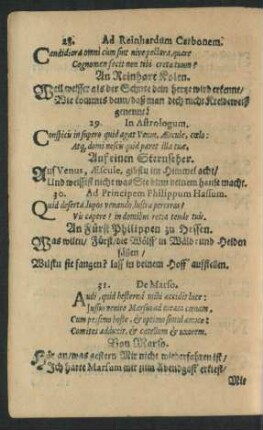 28. Ad Reinhardum Carbonem.
Candidiora omni cum sint nive pectora, quare
Cognomen fecit non tibi creta tuum?
An Reinhart Kolen.
Weil weisser als der Schnee dein hertz wird erkent/
Wie kommts denn/ daß man dich nicht Kreideweiß
genennt?
29. In Astrologum.
Conspicis in supero quid agat Venus, Æscule, cœlo:
Atq, domi nescis quid paret illa tuæ.
Auf einen Sternseher.
Auf Venus, Æscule, gibstu im Himmel acht/
Und weissest nicht was Sie in deinem hause macht.
30. Ad Principem Philippum Hassum.
Quid deserta lupos venando lustra pererras?
Vis capere? in domibus retia tende tuis.
An Fürst Philippen zu Hessen.
Was wiltu/ Fürst/ die Wölff in Wäld- und Heiden
fällen/
Wilstu sie fangen? lass in deinem Hoff aufstellen.
31. De Marso.
Audi, quid hesternâ mihi acciderit luce:
Jussus venire Marsus ad cœnam
Cum pessimo hoste, & optimo simul amico:
Comites adducit, & catellum & uxorem.
Von Marso.
Hör an/ was gestern Mir nicht wiederfahren ist/
Ich hatte Marsum mir zum Abendgast erkiest/
Mit